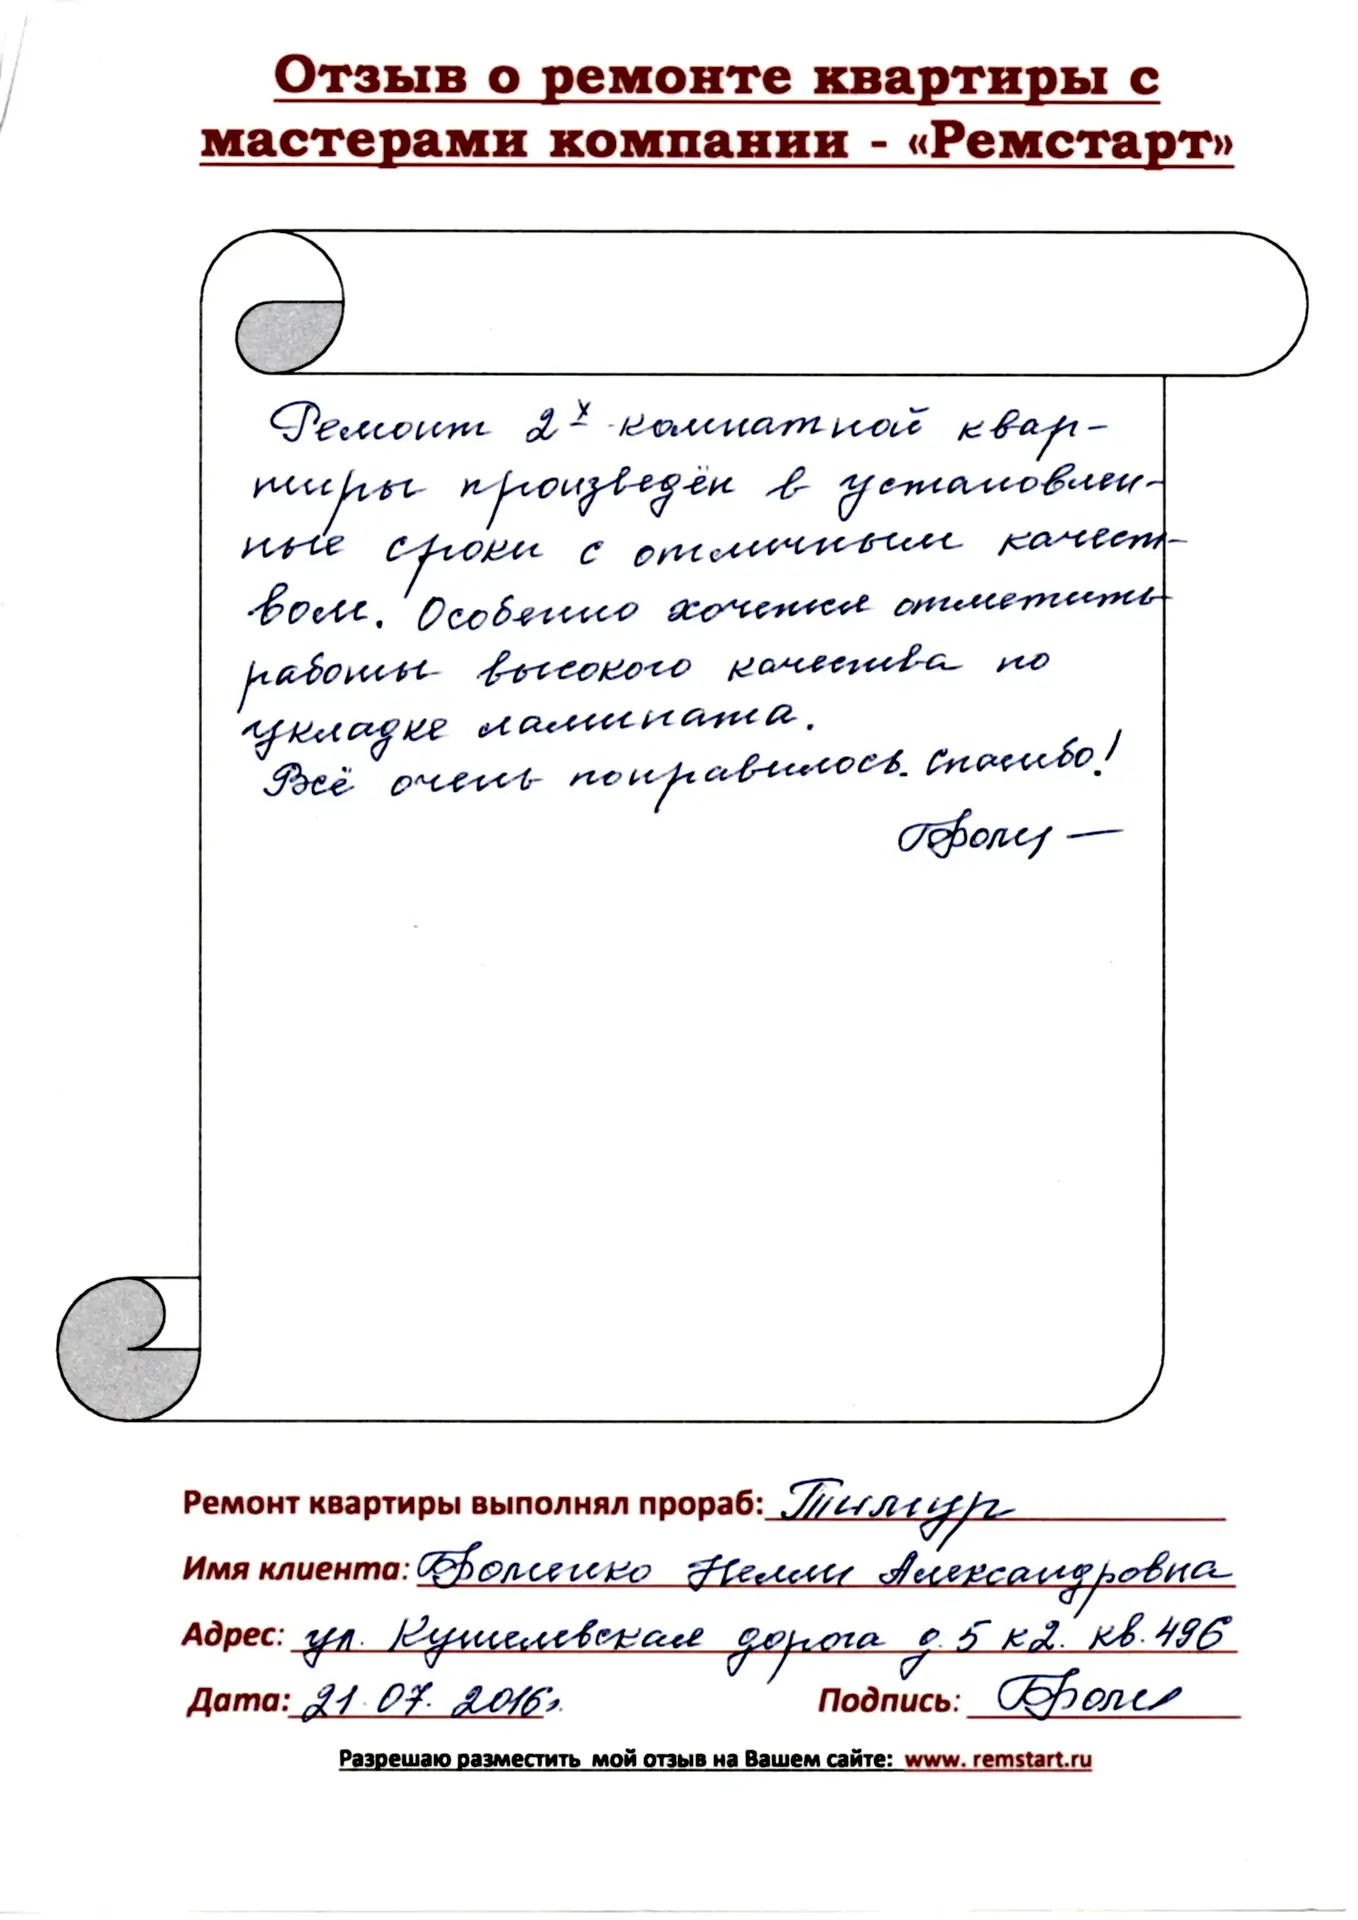 Отзыв о ремонте квартиры с
мастерами компании - «Ремстарт»
Ремонт 2х комнатной квар-
тиры произведён в установлен-
ные сроки с отличным качест-
вом. Особенно хочется отметить
работы высокого качества по
укладке ламината.
Всё очень понравилось. Спасибо!
Ремонт квартиры выполнял прораб: Тимур
Имя клиента: Фоменко Нелли Александровна
Адрес: ул. Кушелевская дорога д. 5 к2. кв. 496
Дата: 21.07.2016г. Подпись:
Разрешаю разместить мой отзыв на Вашем сайте: www. remstart.ru